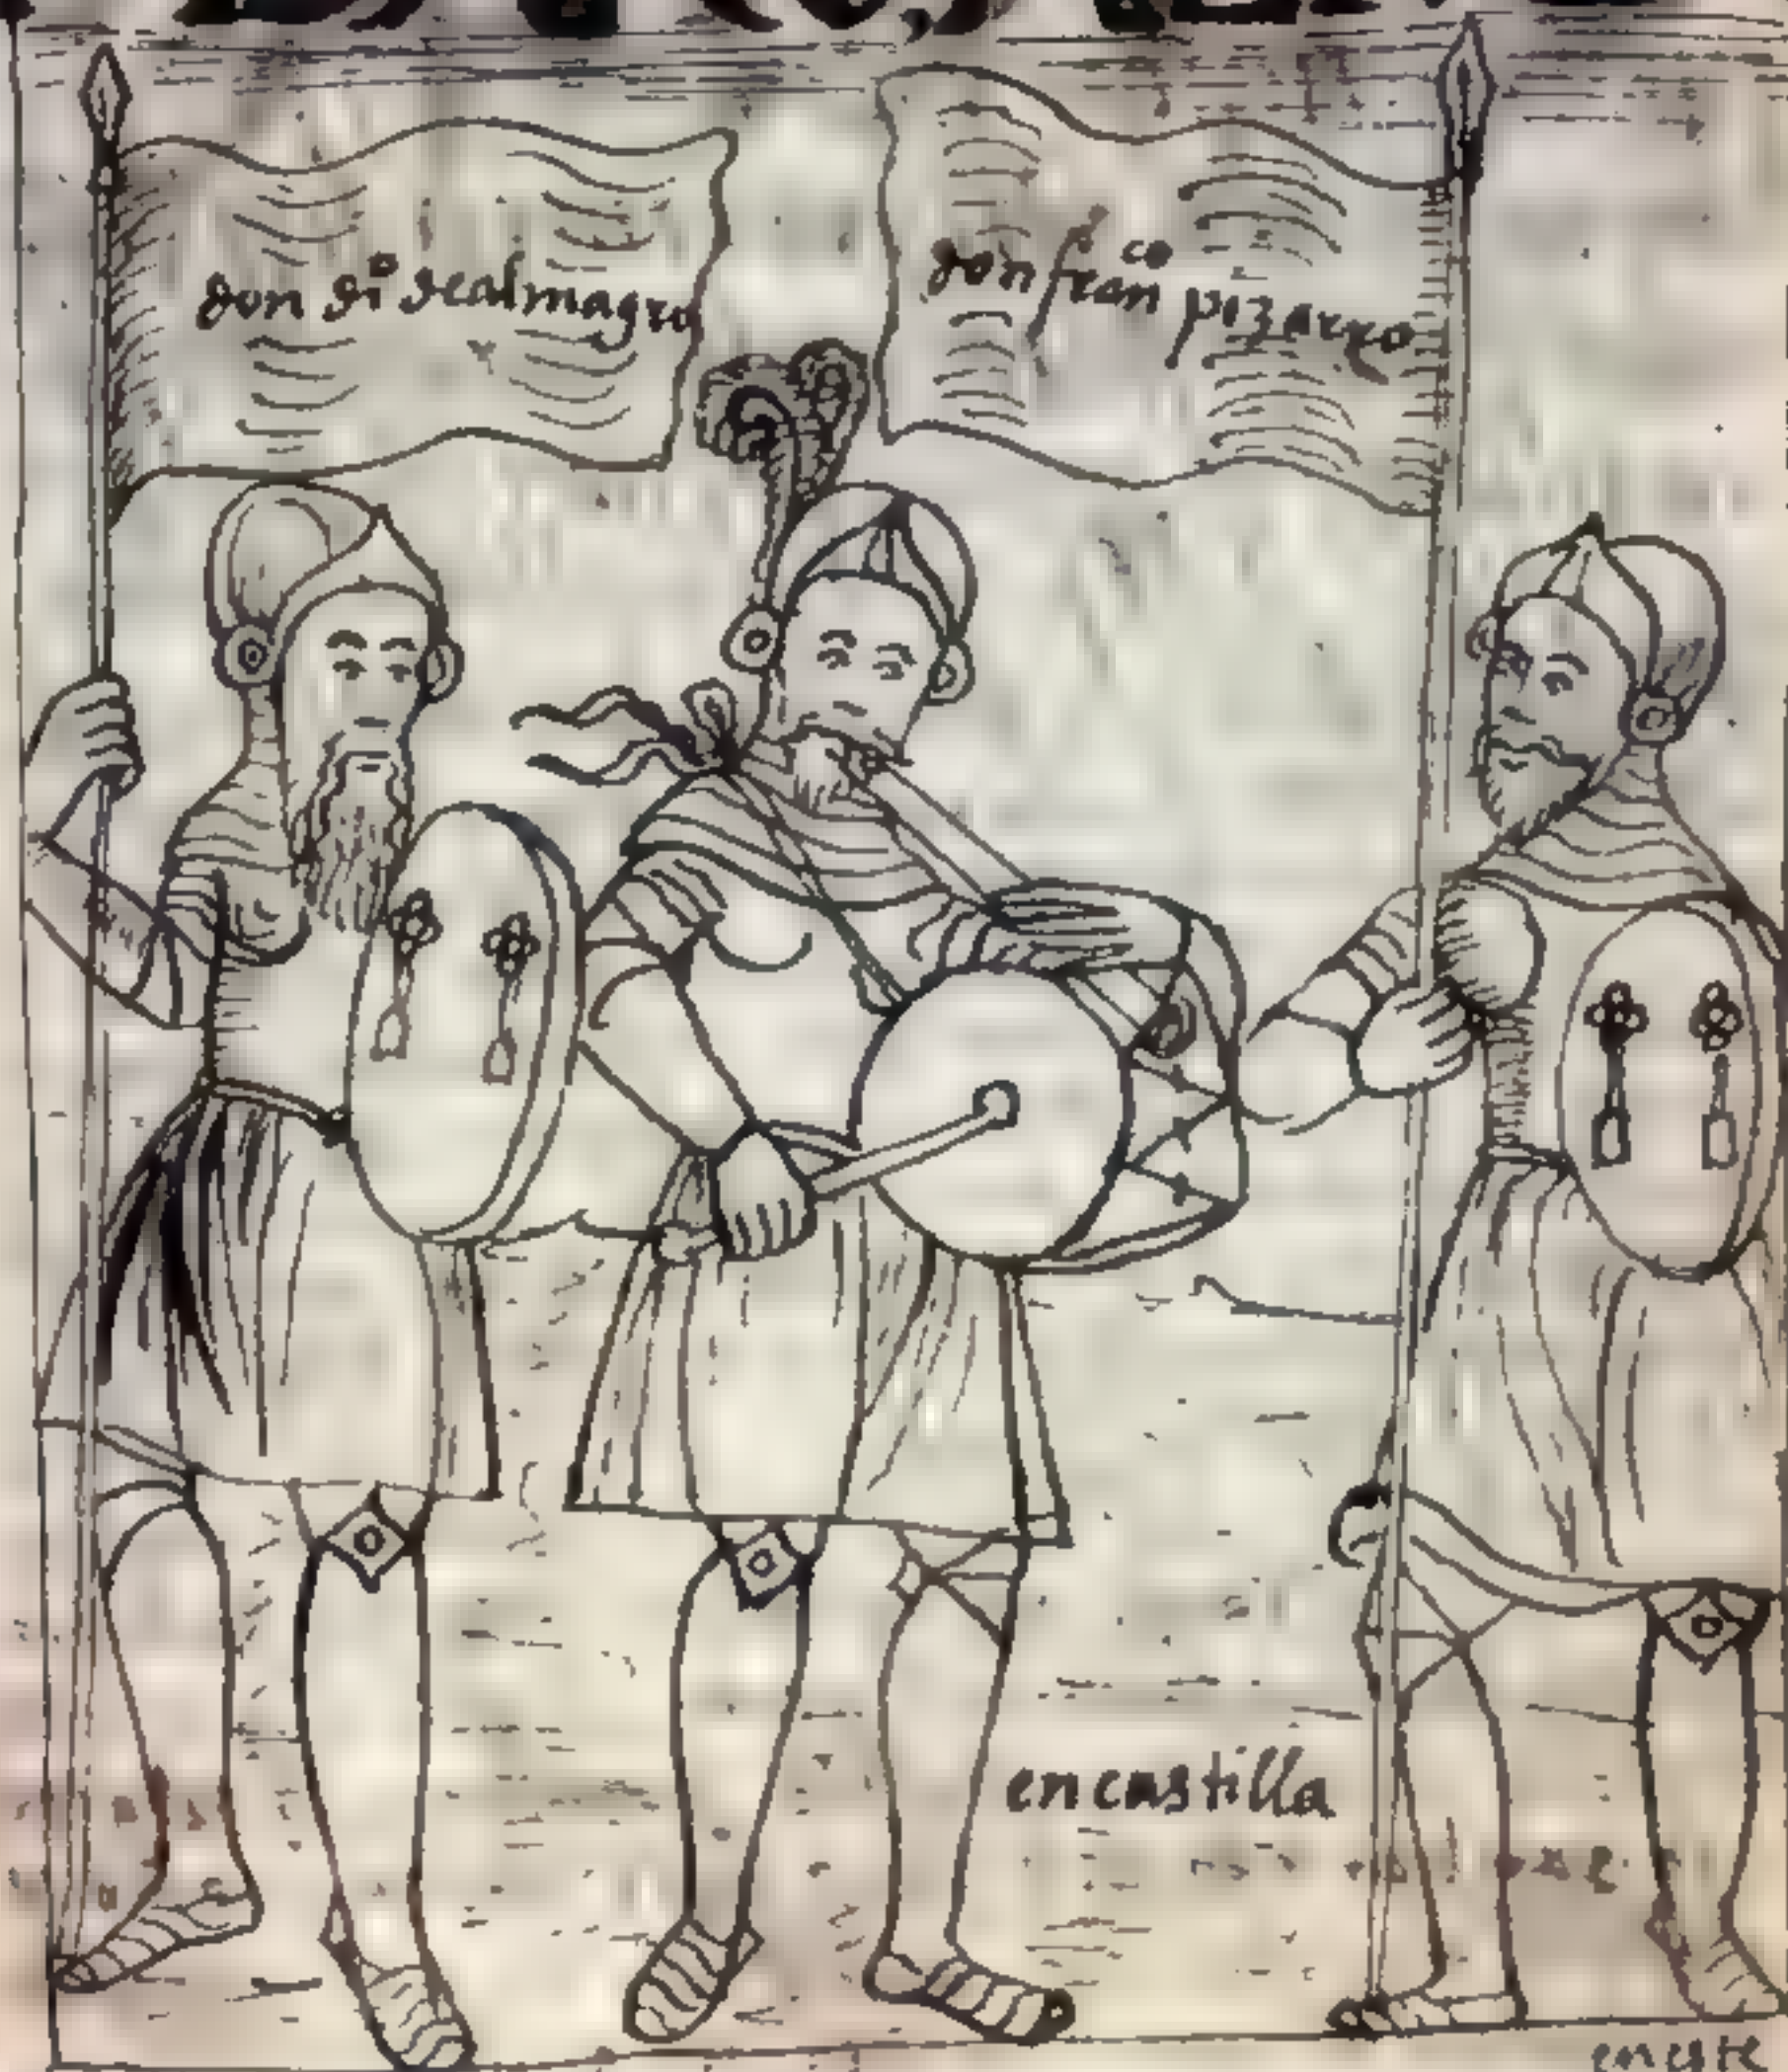 don di° dealmagro
don fran^co pizarro
en castilla
en este